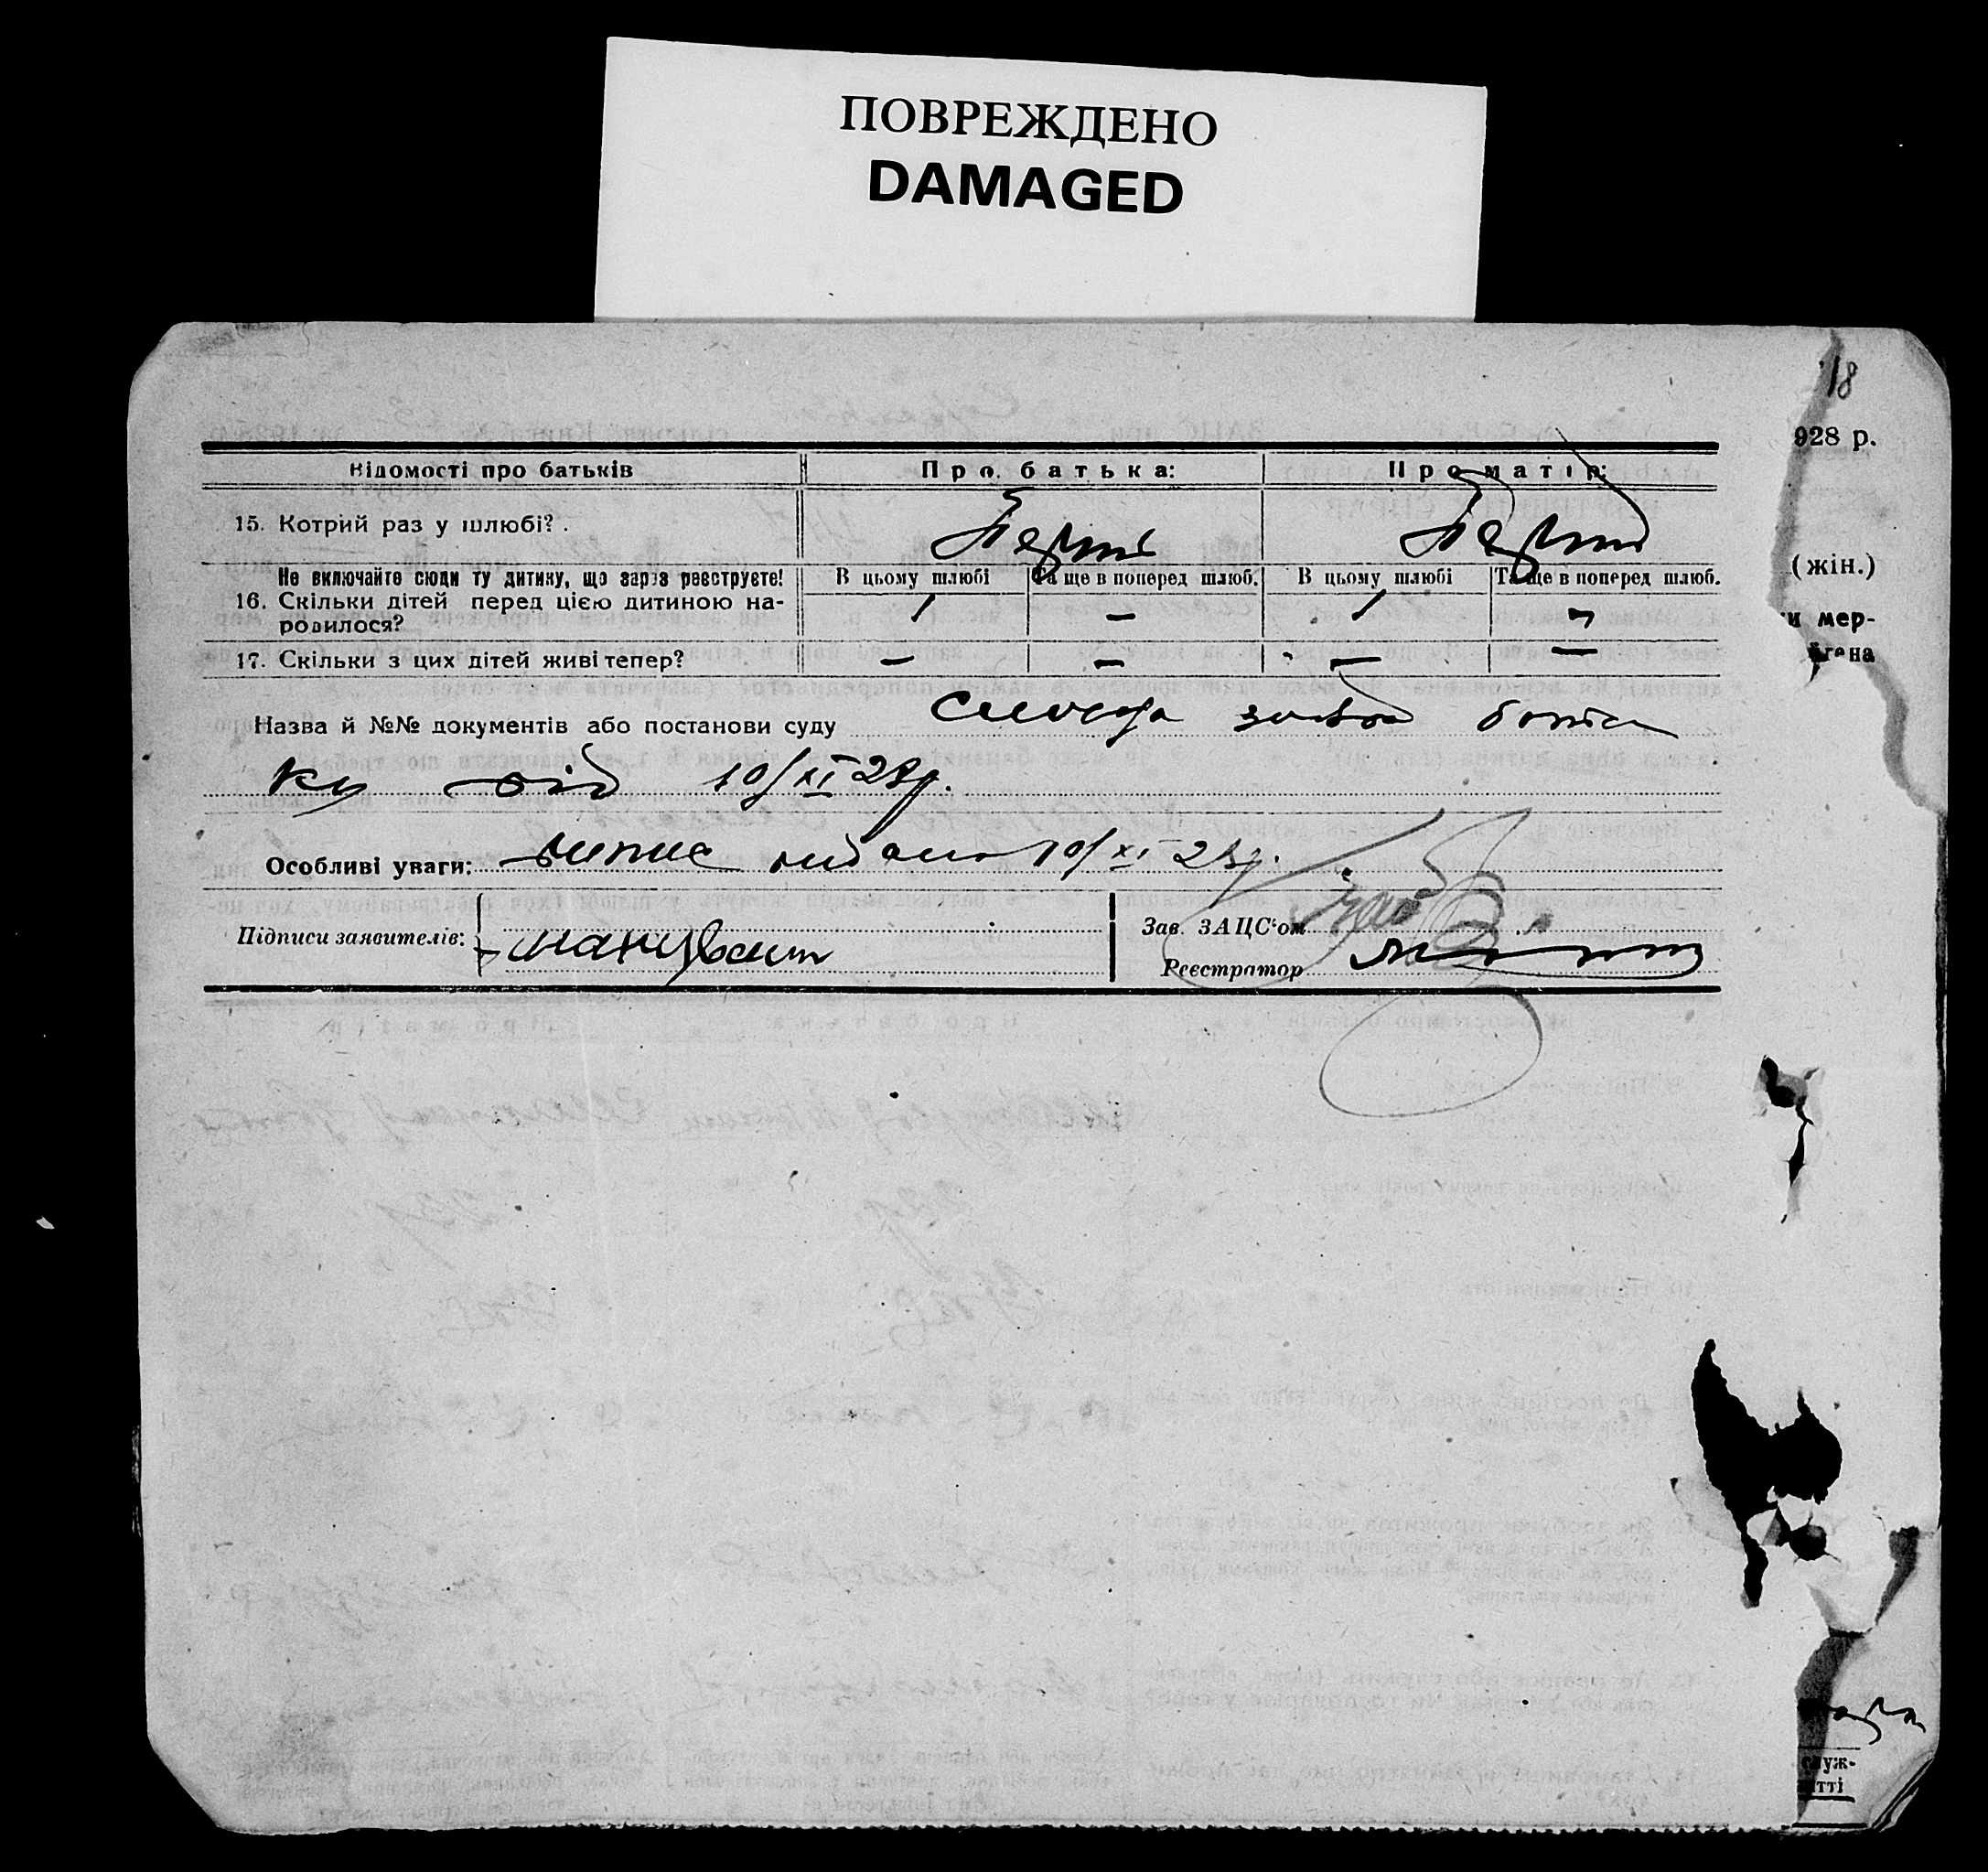 ПОВРЕЖДЕНО
DAMAGED
18
928 р.
Відомості про батьків
Про батька:
Про матір:
15. Котрий раз у шлюбі?
Перший
Перший
(жін.)
Не включайте сюди ту дитину, що зараз реєструєте!
В цьому шлюбі
Та ще в поперед шлюб.
В цьому шлюбі
Та ще в поперед шлюб.
16. Скільки дітей перед цією дитиною на-
родилося?
1 — 1 —
и мер-
17. Скільки з цих дітей живі тепер?
— — — —
Назва й №№ документів або постанови суду
ку від 10/XI 28р.
Особливі уваги: випис видано 10/XI 28р.
Підписи заявителів:
Зав. ЗАЦС'ом
Реєстратор
служ-
итті